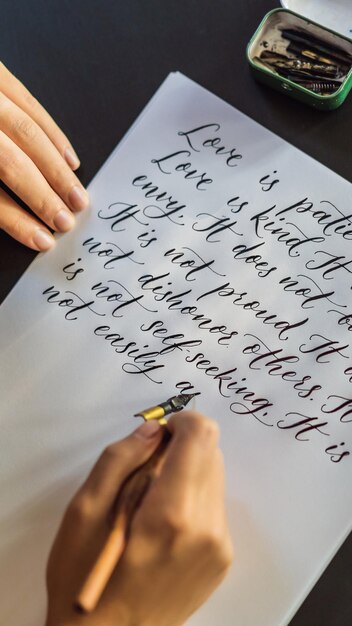 Love is patie
Love is kind. It
envy. It does not
It is not proud. It
not dishonor others. It
is not self-seeking. It is
not easily a